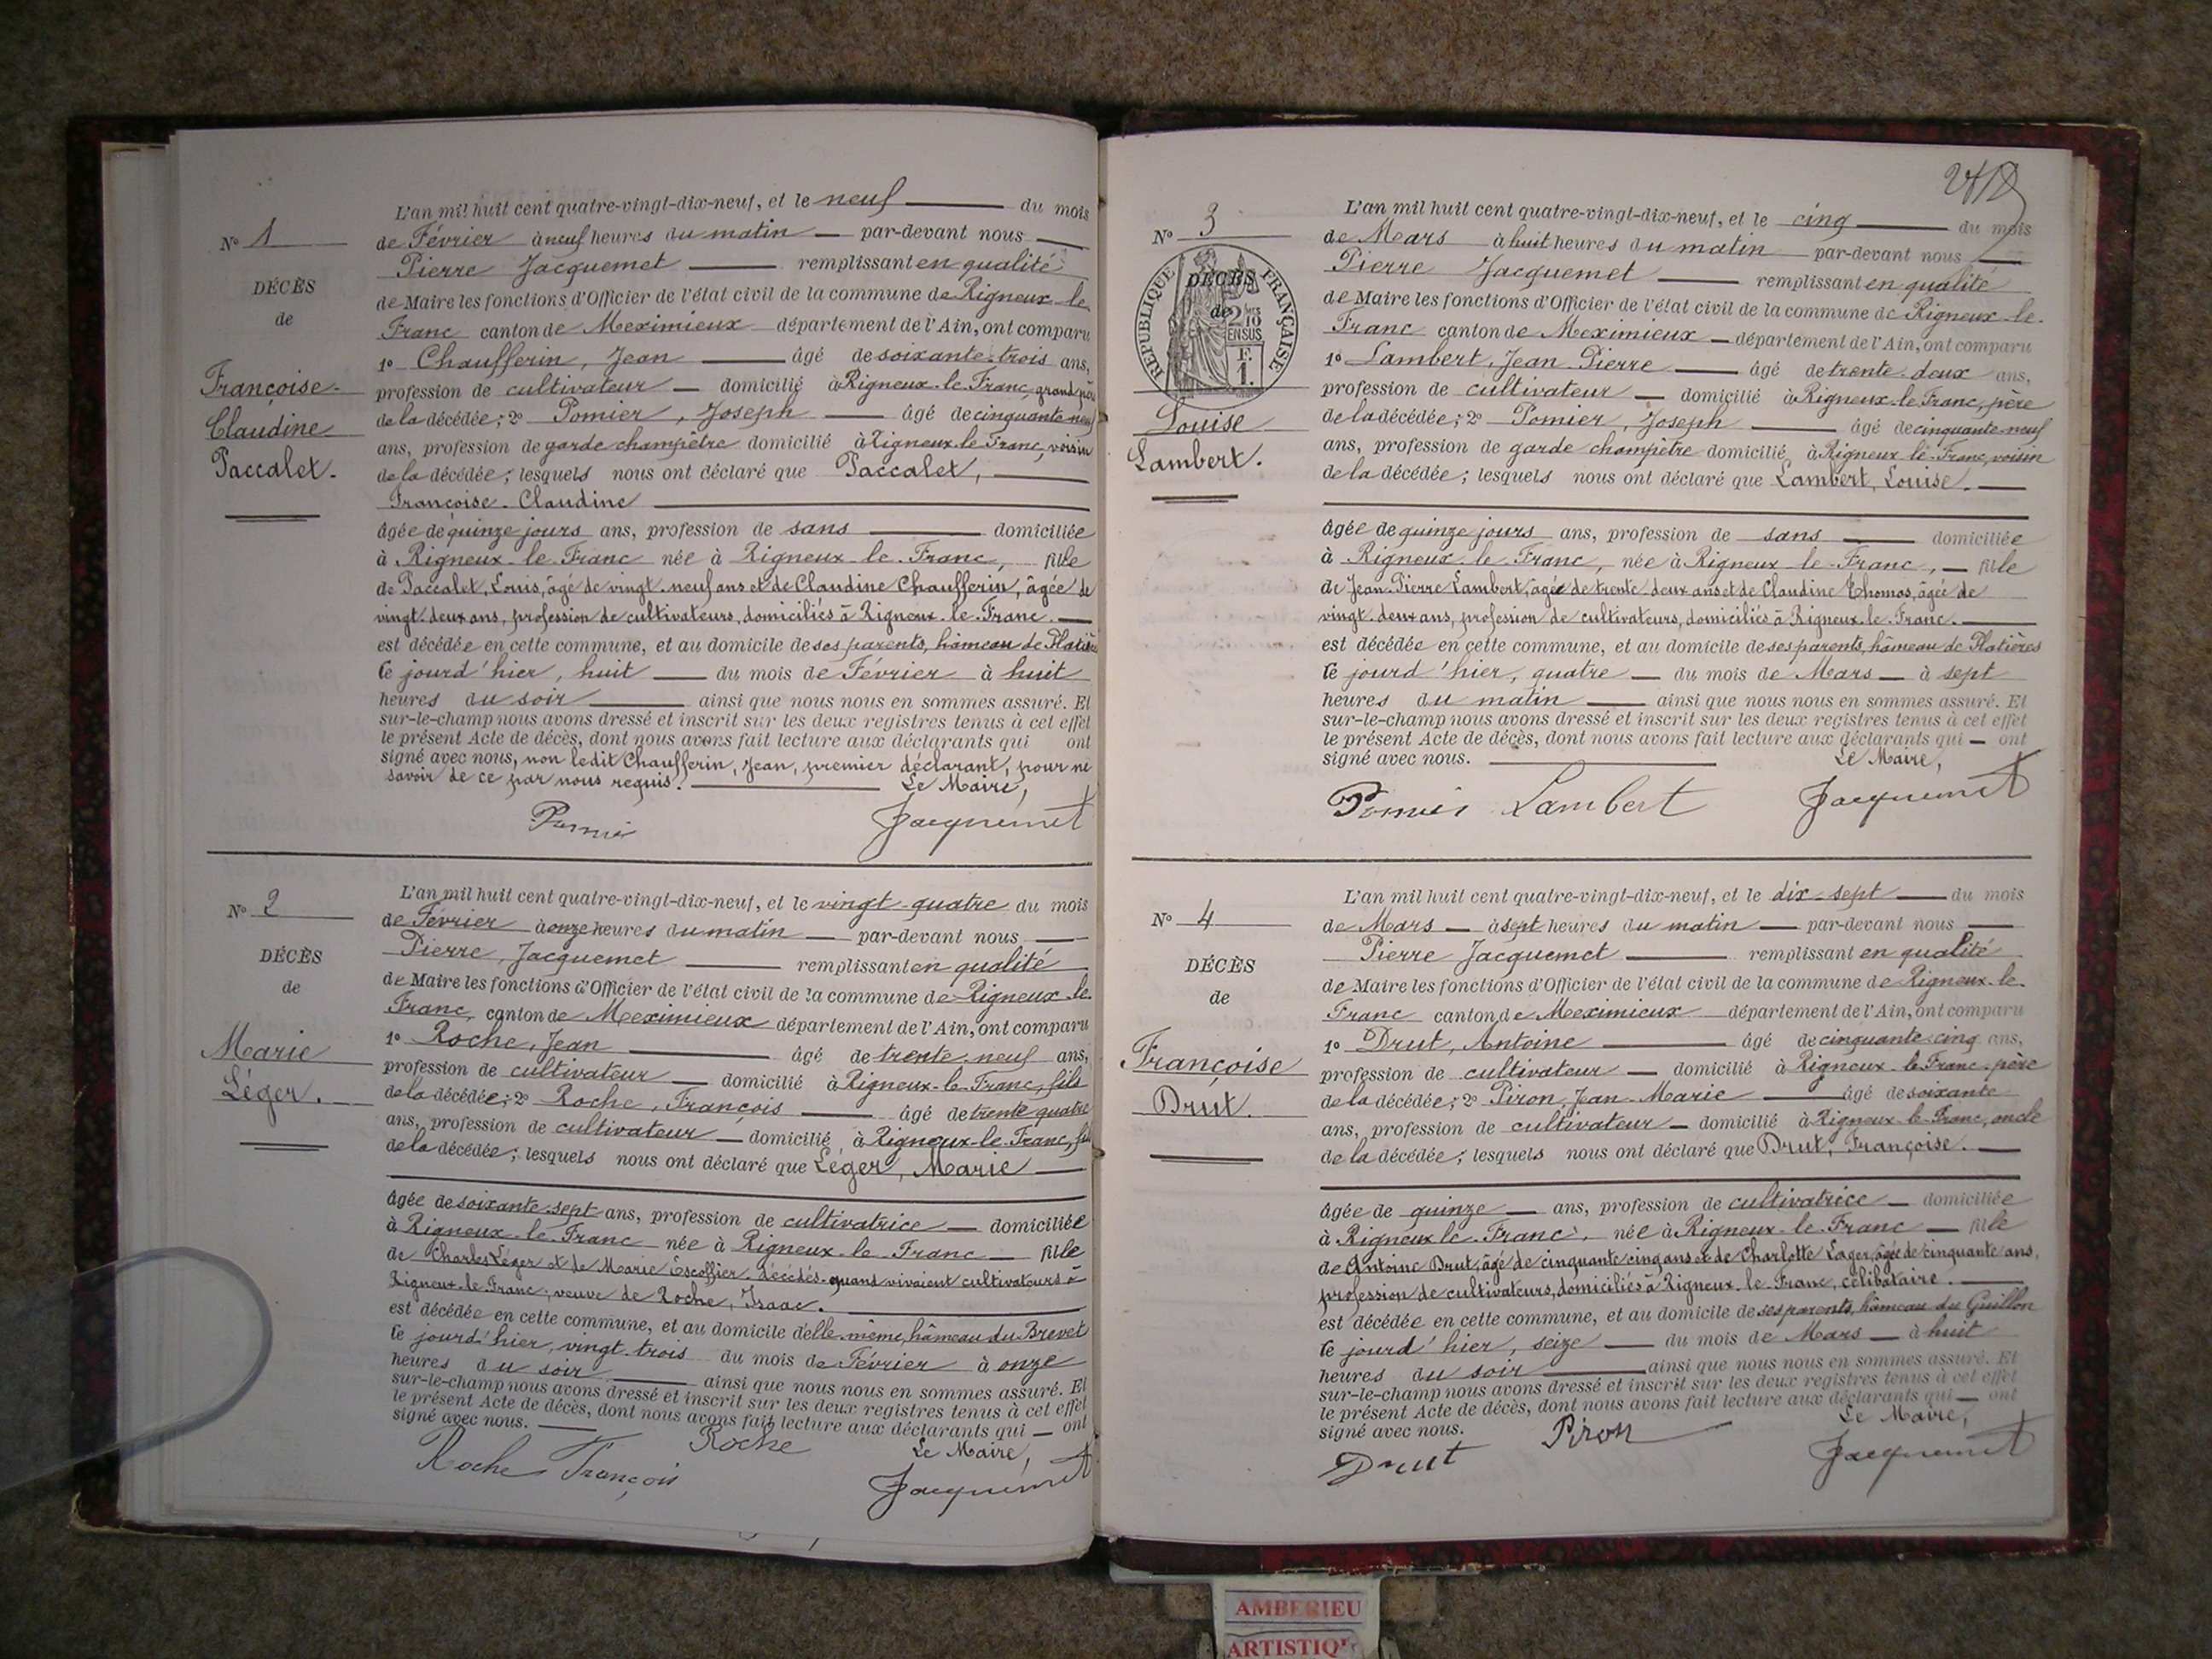 N° 1
DÉCÈS
de
Françoise-
Claudine
Paccalet.
L'an mil huit cent quatre-vingt-dix-neuf, et le neuf du mois
de Février à neuf heures du matin par-devant nous
Pierre Jacquemet remplissant en qualité
de Maire les fonctions d'Officier de l'état civil de la commune de Rigneux-le-
Franc canton de Meximieux département de l'Ain, ont comparu
1° Chaufferin, Jean âgé de soixante-trois ans,
profession de cultivateur domicilié à Rigneux-le-Franc, grand père
de la décédée; 2° Pomier, Joseph âgé de cinquante neuf
ans, profession de garde champêtre domicilié à Rigneux-le-Franc, voisin
de la décédée; lesquels nous ont déclaré que Paccalet,
Françoise-Claudine
âgée de quinze jours ans, profession de sans domiciliée
à Rigneux-le-Franc née à Rigneux-le-Franc, fille
de Paccalet, Louis, âgé de vingt-neuf ans et de Claudine Chaufferin, âgée de
vingt-deux ans, profession de cultivateurs, domiciliés à Rigneux-le-Franc.
est décédée en cette commune, et au domicile de ses parents, hâmeau de Platières
le jourd'hier, huit du mois de Février à huit
heures du soir ainsi que nous nous en sommes assuré. Et
sur-le-champ nous avons dressé et inscrit sur les deux registres tenus à cet effet
le présent Acte de décès, dont nous avons fait lecture aux déclarants qui ont
signé avec nous, non ledit Chaufferin, Jean, premier déclarant, pour ne
savoir de ce par nous requis. Le Maire,
Pomier Jacquemet
N° 2
DÉCÈS
de
Marie
Léger.
L'an mil huit cent quatre-vingt-dix-neuf, et le vingt-quatre du mois
de Février à onze heures du matin par-devant nous
Pierre Jacquemet remplissant en qualité
de Maire les fonctions d'Officier de l'état civil de la commune de Rigneux-le-
Franc, canton de Meximieux département de l'Ain, ont comparu
1° Roche, Jean âgé de trente-neuf ans,
profession de cultivateur domicilié à Rigneux-le-Franc, fils
de la décédée; 2° Roche, François âgé de trente quatre
ans, profession de cultivateur domicilié à Rigneux-le-Franc, fils
de la décédée; lesquels nous ont déclaré que Léger, Marie
âgée de soixante-sept ans, profession de cultivatrice domiciliée
à Rigneux-le-Franc née à Rigneux-le-Franc fille
de Charles Léger et de Marie Escoffier, décédés-quand vivaient cultivateurs à
Rigneux-le-Franc; veuve de Roche, Isaac.
est décédée en cette commune, et au domicile d'elle-même, hâmeau du Brevet
le jourd'hier, vingt-trois du mois de Février à onze
heures du soir ainsi que nous nous en sommes assuré. Et
sur-le-champ nous avons dressé et inscrit sur les deux registres tenus à cet effet
le présent Acte de décès, dont nous avons fait lecture aux déclarants qui ont
signé avec nous.
Roche François Roche Le Maire,
Jacquemet
N° 3
RÉPUBLIQUE FRANÇAISE
DÉCÈS
de
2/10 EN SUS
F. 1.
Louise
Lambert.
L'an mil huit cent quatre-vingt-dix-neuf, et le cinq du mois
de Mars à huit heures du matin par-devant nous
Pierre Jacquemet remplissant en qualité
de Maire les fonctions d'Officier de l'état civil de la commune de Rigneux-le-
Franc canton de Meximieux département de l'Ain, ont comparu
1° Lambert, Jean Pierre âgé de trente-deux ans,
profession de cultivateur domicilié à Rigneux-le-Franc, père
de la décédée; 2° Pomier, Joseph âgé de cinquante-neuf
ans, profession de garde champêtre domicilié à Rigneux-le-Franc, voisin
de la décédée; lesquels nous ont déclaré que Lambert, Louise.
âgée de quinze jours ans, profession de sans domiciliée
à Rigneux-le-Franc, née à Rigneux-le-Franc, fille
de Jean-Pierre Lambert, âgée de trente-deux ans et de Claudine Thomas, âgée de
vingt-deux ans, profession de cultivateurs, domiciliés à Rigneux-le-Franc.
est décédée en cette commune, et au domicile de ses parents, hâmeau de Platières
le jourd'hier, quatre du mois de Mars à sept
heures du matin ainsi que nous nous en sommes assuré. Et
sur-le-champ nous avons dressé et inscrit sur les deux registres tenus à cet effet
le présent Acte de décès, dont nous avons fait lecture aux déclarants qui ont
signé avec nous. Le Maire,
Pomier Lambert Jacquemet
N° 4
DÉCÈS
de
Françoise
Drut.
L'an mil huit cent quatre-vingt-dix-neuf, et le dix-sept du mois
de Mars à sept heures du matin par-devant nous
Pierre Jacquemet remplissant en qualité
de Maire les fonctions d'Officier de l'état civil de la commune de Rigneux-le-
Franc canton de Meximieux département de l'Ain, ont comparu
1° Drut, Antoine âgé de cinquante-cinq ans,
profession de cultivateur domicilié à Rigneux-le-Franc, père
de la décédée; 2° Piron, Jean-Marie âgé de soixante
ans, profession de cultivateur domicilié à Rigneux-le-Franc, oncle
de la décédée; lesquels nous ont déclaré que Drut, Françoise.
âgée de quinze ans, profession de cultivatrice domiciliée
à Rigneux-le-Franc, née à Rigneux-le-Franc fille
de Antoine Drut, âgé de cinquante cinq ans et de Charlotte Lager, âgée de cinquante ans,
profession de cultivateurs, domiciliés à Rigneux-le-Franc, célibataire.
est décédée en cette commune, et au domicile de ses parents, hâmeau du Guillon
le jourd'hier, seize du mois de Mars à huit
heures du soir ainsi que nous nous en sommes assuré. Et
sur-le-champ nous avons dressé et inscrit sur les deux registres tenus à cet effet
le présent Acte de décès, dont nous avons fait lecture aux déclarants qui ont
signé avec nous. Le Maire,
Drut Piron Jacquemet
AMBERIEU
ARTISTIQ